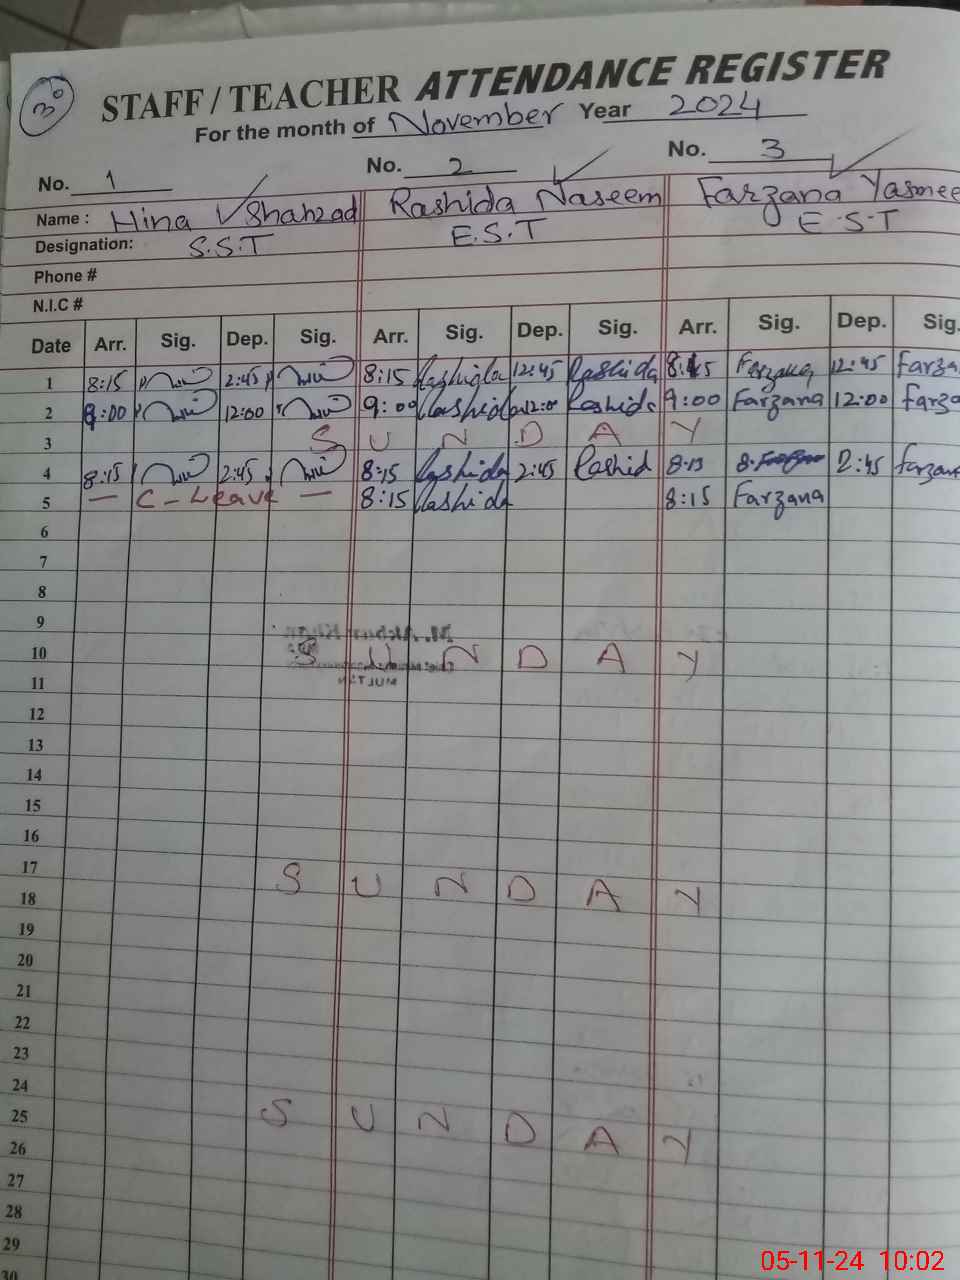 30
STAFF / TEACHER ATTENDANCE REGISTER
For the month of November Year 2024
No. 1 No. 2 No. 3
Name : Hina Shahzad Rashida Naseem Farzana Yasmee
Designation: S.S.T E.S.T E.S.T
Phone #
N.I.C #
Date Arr. Sig. Dep. Sig. Arr. Sig. Dep. Sig. Arr. Sig. Dep. Sig.
1 8:15 12:45 8:15 Rashida 12:45 Rashida 8:15 Farzana 12:45 Farza
2 9:00 12:00 9:00 Rashida 12:00 Rashida 9:00 Farzana 12:00 Farza
3 S U N D A Y
4 8:15 2:45 8:15 Rashida 2:45 Rashid 8:15 2:45 Farzana
5 — C-Leave — 8:15 Rashida 8:15 Farzana
6
7
8
9
10 S U N D A Y
11
12
13
14
15
16
17 S U N D A Y
18
19
20
21
22
23
24
25 S U N D A Y
26
27
28
29
30
05-11-24 10:02